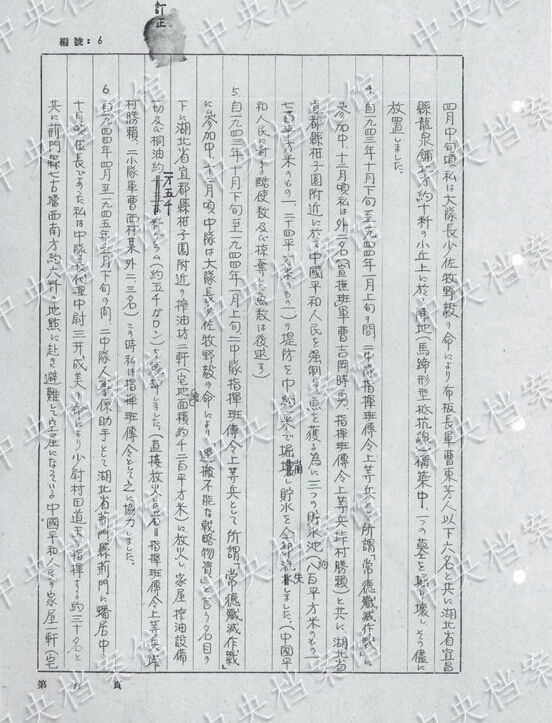 訂正
編號：6
四月中旬頃私は大隊長少佐牧野毅の命により布板長軍曹東芳人以下六名と共に湖北省宜昌
縣龍泉鋪北方約十粁の小丘上に於て陣地(馬蹄形型抵抗線)構築中、一つの墓を掘り壊し、その儘に
放置しました。
4. 自一九四三年十月下旬至一九四四年一月上旬の間、二中隊指揮班傳令上等兵として所謂「常德殲滅作戰」に
参加中、十二月頃私は外二名(指揮班軍曹吉岡時馬、指揮班傳令上等兵垰村勝頼)と共に湖北省
宜都縣柑子園附近に於て中國平和人民を强制し魚を獲る為に三つの貯水池(八百平方米のもの一、
七百平方米のもの一、二十四平方米のもの一)の堤防を巾約一米で掘壊し貯水を全部流失しました。(中國平
和人民に対する酷使数及び掠奪した魚数は後述す)
5. 自一九四三年十月下旬至一九四四年一月上旬、二中隊指揮班傳令上等兵として所謂「常德殲滅作戰」
に参加中、十二月頃中隊は大隊長少佐牧野毅の命により「運搬不能な戰略物資」と言う名目の
下に湖北省宜都縣柑子園附近の搾油坊二軒(宅地面積約千二百平方米)に放火し、家屋、搾油設備
一切及び桐油約ドラム(約五千ガロン)を燒却しました。(直接放火した者=指揮班傳令上等兵垰
村勝頼、二小隊軍曹西村某外二、三名)この時私は指揮班傳令として之に協力しました。
6. 自一九四四年四月至一九四五年三月下旬の間、二中隊人事係助手として湖北省荊門縣荊門に蟠居中、
十月頃伍長であった私は中隊長代理中尉三井成美の命により少尉村田道夫の指揮する約三十名と
共に荊門縣七古塲西南方約六粁の地點に赴き避難して空屋になっている中國平和人民の家屋一軒(宅
第 頁
中央档案馆